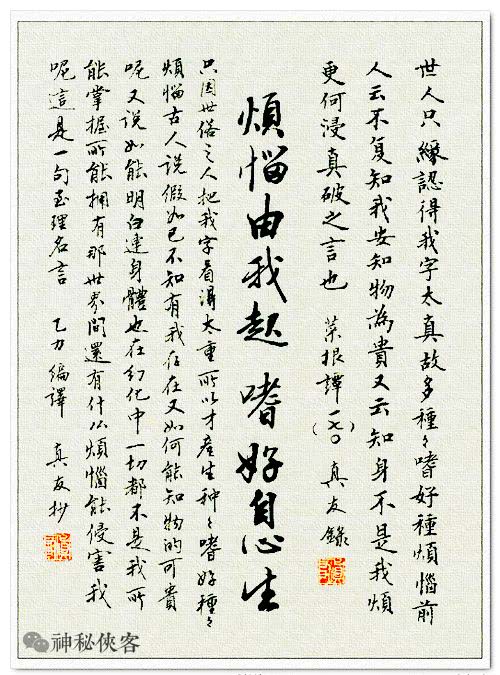 世人只緣認得我字太真故多種々嗜好種煩惱前
人云不复知我安知物為貴又云知身不是我煩
更何浸真破之言也 菜根譚(一七〇) 真友錄
煩惱由我起 嗜好自心生
只因世俗之人把我字看得太重所以才產生種々嗜好種々
煩惱古人説假如已不知有我存在又如何能知物的可貴
呢又说如能明白連身體也在幻化中一切都不是我所
能掌握所能拥有那世界間還有什么煩惱能侵害我
呢這是一句至理名言 乙力編譯 真友抄
神秘俠客